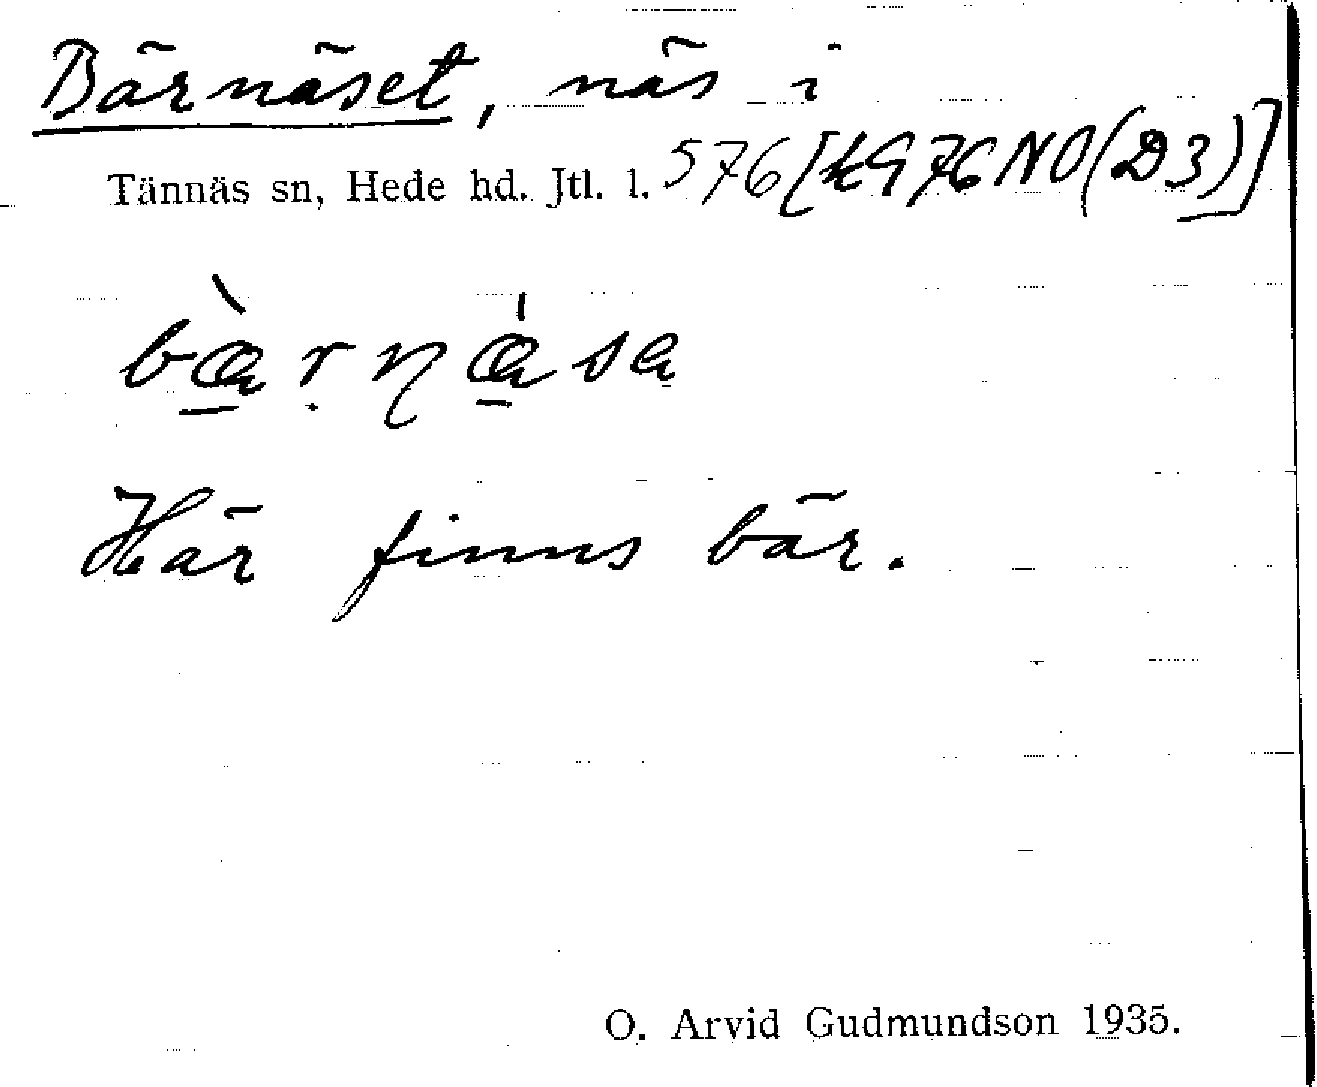 Bärnäset, näs i
Tännäs sn, Hede hd. Jtl. l. 576 [kg 76 NO (D3)]
Här finns bär.
O. Arvid Gudmundson 1935.